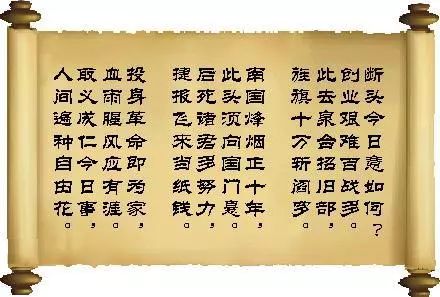 断头今日意如何？
创业艰难百战多。
此去泉台招旧部，
旌旗十万斩阎罗。
南国烽烟正十年，
此头须向国门悬。
后死诸君多努力，
捷报飞来当纸钱。
投身革命即为家，
血雨腥风应有涯。
取义成仁今日事，
人间遍种自由花。